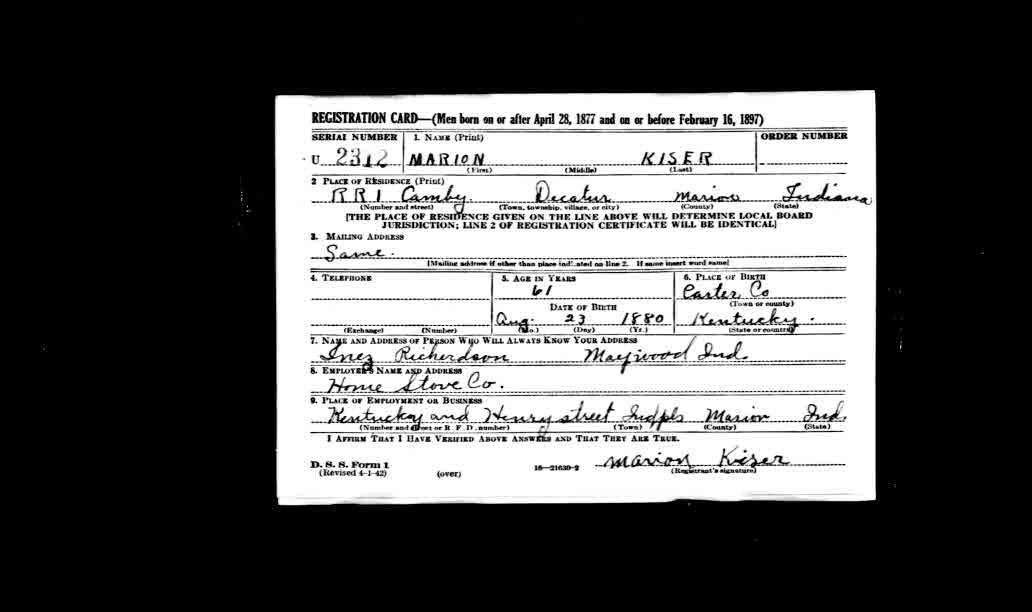 REGISTRATION CARD—(Men born on or after April 28, 1877 and on or before February 16, 1897)
SERIAL NUMBER 1. NAME (Print) ORDER NUMBER
U 2312 MARION KISER
(First) (Middle) (Last)
2 PLACE OF RESIDENCE (Print)
R R 1 Camby. Decatur Marion Indiana
(Number and street) (Town, township, village, or city) (County) (State)
[THE PLACE OF RESIDENCE GIVEN ON THE LINE ABOVE WILL DETERMINE LOCAL BOARD
JURISDICTION; LINE 2 OF REGISTRATION CERTIFICATE WILL BE IDENTICAL]
3. MAILING ADDRESS
Same.
[Mailing address if other than place indicated on line 2. If same insert word same]
4. TELEPHONE 5. AGE IN YEARS 6. PLACE OF BIRTH
61 Carter Co
DATE OF BIRTH (Town or county)
Aug. 23 1880 Kentucky.
(Exchange) (Number) (Mo.) (Day) (Yr.) (State or country)
7. NAME AND ADDRESS OF PERSON WHO WILL ALWAYS KNOW YOUR ADDRESS
Inez Richerdson Maywood Ind.
8. EMPLOYER'S NAME AND ADDRESS
Home Stove Co.
9. PLACE OF EMPLOYMENT OR BUSINESS
Kentucky and Henry street Indpls Marion Ind.
(Number and street or R. F. D. number) (Town) (County) (State)
I AFFIRM THAT I HAVE VERIFIED ABOVE ANSWERS AND THAT THEY ARE TRUE.
D. S. S. Form 1
(Revised 4-1-42) (over) 16—21630-2 Marion Kiser
(Registrant's signature)